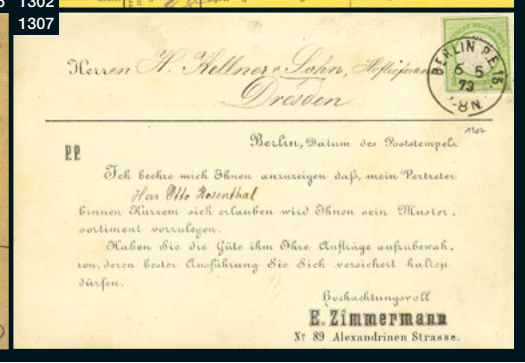 1302
1307
Herren H. Kellner & Sohn, Hoflieferant
Dresden
BERLIN P.E. 15.
6 5
73
-8N.
1307
Berlin, Datum des Poststempels
PP
Ich beehre mich Ihnen anzuzeigen daß, mein Vertreter
Herr Otto Rosenthal
binnen Kurzem sich erlauben wird Ihnen sein Muster,
sortiment vorzulegen.
Haben Sie die Güte ihm Ihre Aufträge aufzubewah,
ren, deren bester Ausführung Sie Sich versichert halten
dürfen.
Hochachtungsvoll
E. Zimmermann
Nº 89 Alexandrinen Strasse.